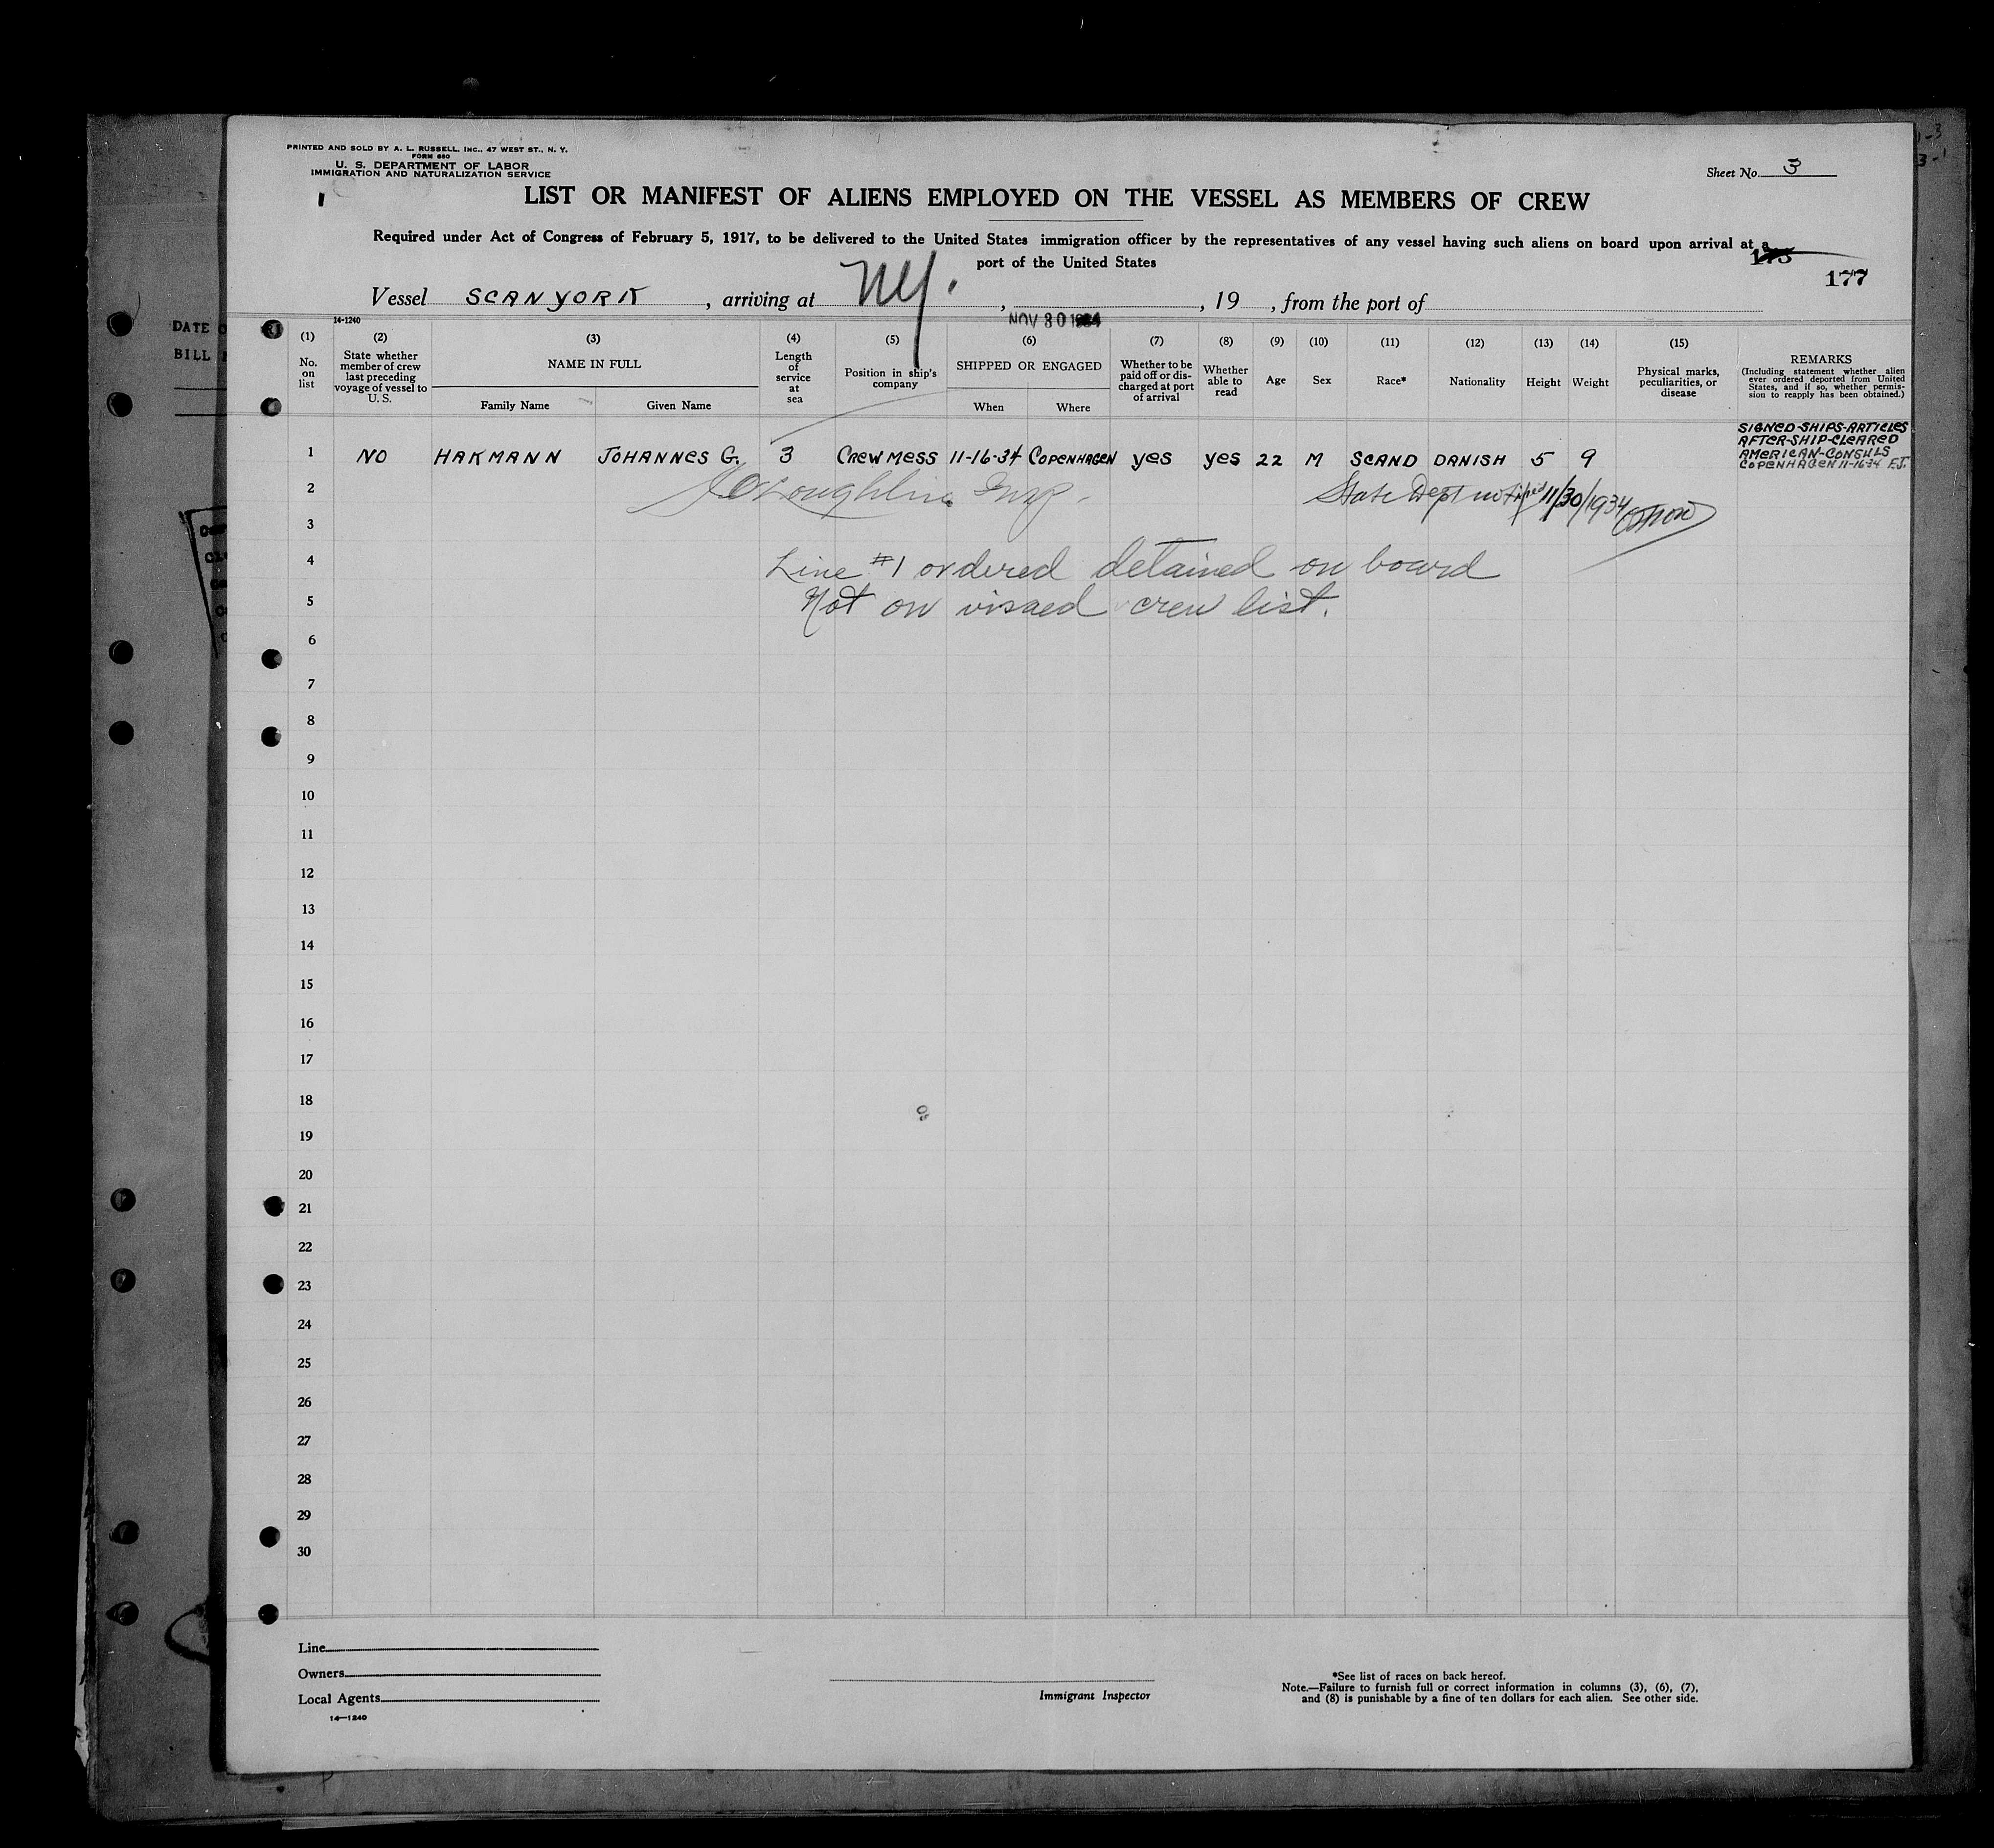 PRINTED AND SOLD BY A. L. RUSSELL, INC., 47 WEST ST., N. Y.
FORM 680
U. S. DEPARTMENT OF LABOR
IMMIGRATION AND NATURALIZATION SERVICE
Sheet No. 3
LIST OR MANIFEST OF ALIENS EMPLOYED ON THE VESSEL AS MEMBERS OF CREW
Required under Act of Congress of February 5, 1917, to be delivered to the United States immigration officer by the representatives of any vessel having such aliens on board upon arrival at a
port of the United States
175
177
Vessel SCANYORK, arriving at NY., , 19 , from the port of
NOV 30 1934
14-1240
(1) No. on list
(2) State whether member of crew last preceding voyage of vessel to U. S.
(3) NAME IN FULL
Family Name
Given Name
(4) Length of service at sea
(5) Position in ship's company
(6) SHIPPED OR ENGAGED
When
Where
(7) Whether to be paid off or discharged at port of arrival
(8) Whether able to read
(9) Age
(10) Sex
(11) Race*
(12) Nationality
(13) Height
(14) Weight
(15) Physical marks, peculiarities, or disease
REMARKS
(Including statement whether alien ever ordered deported from United States, and if so, whether permission to reapply has been obtained.)
1 NO HAKMANN JOHANNES G. 3 CREW MESS 11-16-34 COPENHAGEN yes yes 22 M SCAND DANISH 5 9
SIGNED-SHIPS-ARTICLES
AFTER-SHIP-CLEARED
AMERICAN-CONSULS
COPENHAGEN 11-16-34 F.J.
2 Loughlin Insp. State Dept notified 11/30/1934
3
4 Line #1 ordered detained on board
5 Not on visaed crew list.
6
7
8
9
10
11
12
13
14
15
16
17
18
19
20
21
22
23
24
25
26
27
28
29
30
Line
Owners
Local Agents
14—1240
Immigrant Inspector
*See list of races on back hereof.
Note.—Failure to furnish full or correct information in columns (3), (6), (7),
and (8) is punishable by a fine of ten dollars for each alien. See other side.
DATE
BILL